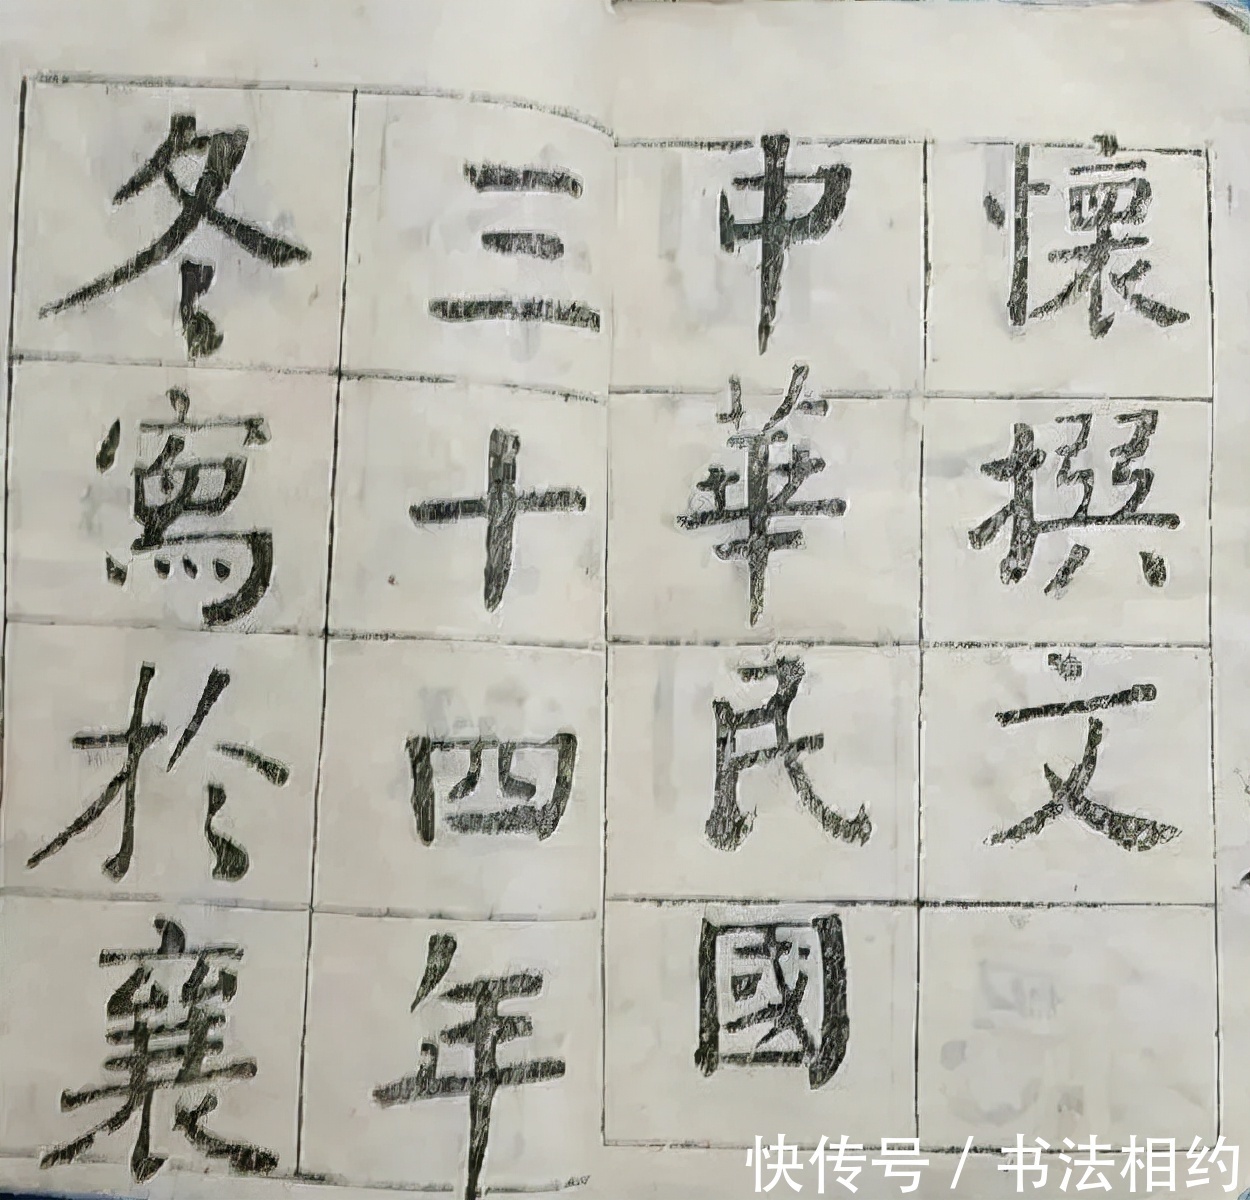 懷撰文
中華民國
三十四年
冬寫於襄
快传号 / 书法相约